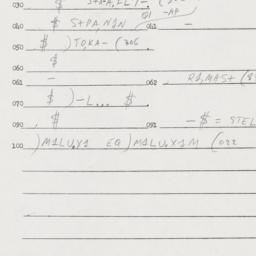 030 $ S+PA,LL)-
040 $ S+PA,N1N 041 -
050 $ )TOKA-(306
060 $
061 - 062 , RA,MAS+ (8
070 $ )-L... $
090, $ 091 -$ = STEL
100 )M1LU,X1 EQ )M1LU,X1M (022